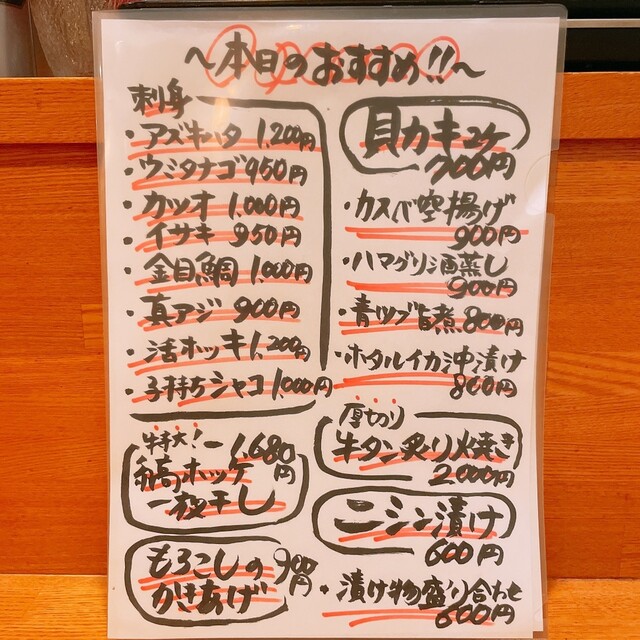 〜本日のおすすめ!!〜
刺身
・アズキハタ 1,200円
・ウミタナゴ 950円
・カツオ 1,000円
・イサキ 950円
・金目鯛 1,000円
・真アジ 900円
・活ホッキ 1,200円
・子持ちシャコ 1,000円
特大!
縞ホッケ
一夜干し
1,680円
もろこしの
かきあげ
900円
貝カキユケ
700円
・カスベ空揚げ
900円
・ハマグリ酒蒸し
900円
・青ツブ旨煮 800円
・ホタルイカ沖漬け
800円
厚切り
牛タン炙り焼き
2000円
ニシン漬け
600円
・漬け物盛り合わせ
600円